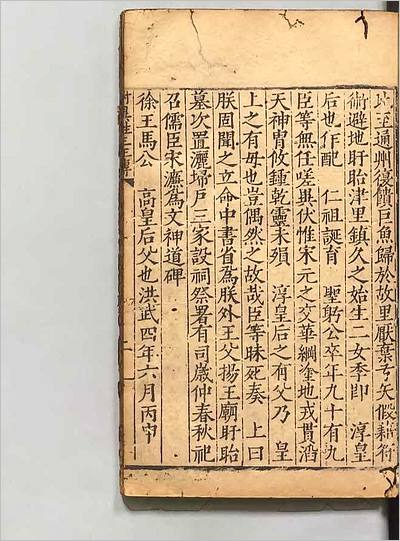 此至通州復饋巨魚歸於故里厭葉兮矢假耨符
術避地盱眙津里鎮久之始生二女季即　淳皇
后也作配　仁祖誕育　聖躬公卒年九十有九
臣等無任嗟異伏惟宋元之交華綱塗地戎貫滔
天神胄攸鍾乾靈未殞　淳皇后之有父乃　皇
上之有母也豈偶然之故哉臣等昧死奏　上曰
朕固聞之立命中書省為朕外王父揚王廟盱眙
墓次置灑埽戶三家設祠祭署有司歲仲春秋祀
召儒臣宋濂為文神道碑
徐王馬公　高皇后父也洪武四年六月丙申